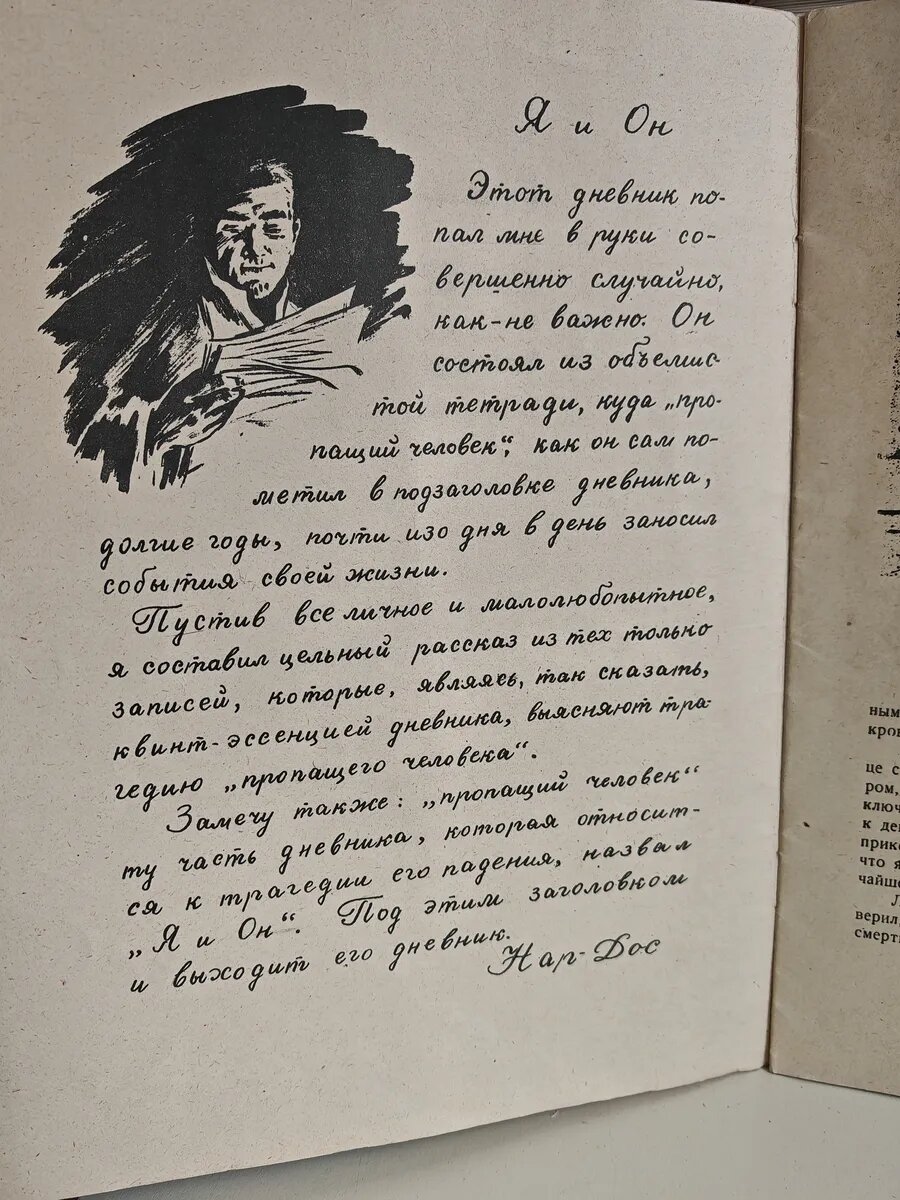 Я и Он
Этот дневник по-
пал мне в руки со-
вершенно случайно,
как-не важно. Он
состоял из объемис
той тетради, куда „про-
пащий человек“, как он сам по-
метил в подзаголовке дневника,
долгие годы, почти изо дня в день заносил
события своей жизни.
Пустив все личное и малолюбопытное,
я составил цельный рассказ из тех только
записей, которые, являясь, так сказать,
квинт-эссенцией дневника, выясняют тра-
гедию „пропащего человека“.
Замечу также: „пропащий человек“
ту часть дневника, которая относит-
ся к трагедии его падения, назвал
„Я и Он“. Под этим заголовком
и выходит его дневник.
Нар-Дос
ным
кро
це с
ром,
ключ
к де
прик
что я
чайше
Л
верил,
смерт